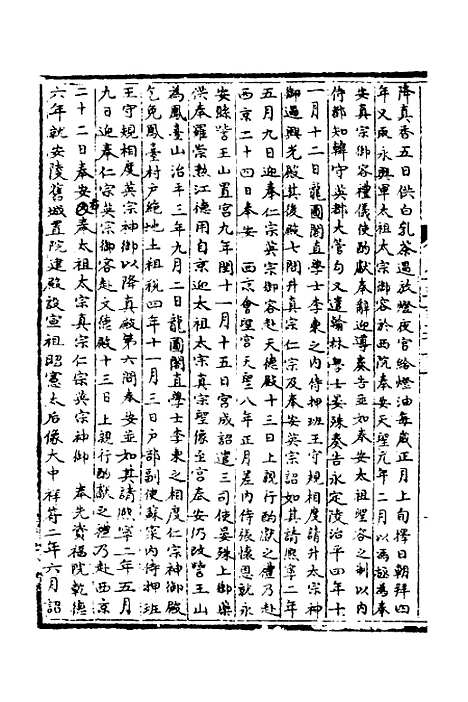 降真香五日供白乳茶遇放燈夜官給燈油每歲正月上旬擇日朝拜四
年又永興軍太祖太宗御容於西院奉安天聖元年二月以為奉
安真宗御容禮儀使酌獻奉辭迎導奉告並如奉安太祖聖容之制以內
侍都知韓守英都大管勾又遣翰林學士晏殊奏告永定陵治平四年十
一月十二日龍圖閣直學士李柬之內侍押班王守規相度請升太宗神
御遇興先殿其後殿七間升真宗仁宗及奉安英宗詔如其請熙寧二年
五月九日迎奉仁宗英宗御容赴天德殿十三日上親行酌獻之禮乃赴
西京二十四日奉安 西京會聖宮天聖八年正月差內侍張懷恩就永
安縣訾王山置宮九年閏十一月十五日宮成詔遣三司使晏殊上御樂
供奉羅崇勲江德用自京迎太祖太宗真宗聖像至宮奉安仍改訾王山
為鳳臺山治平三年九月二日龍圖閣直學士李柬之相度仁宗神御殿
乞免鳳臺村戶絶地土祖稅四年十一月三日戶部副使蘇寀內侍押班
王守規相度英宗神御以降真殿第六間奉安並如其請熙寧二年五月
九日迎奉仁宗英宗御容赴文德殿十三日上親行酌獻之禮乃赴西京
二十二日奉安 太祖太宗真宗仁宗英宗神御 奉先資福院乾德
六年就安陵舊城置院建殿設宣祖昭憲太后像大中祥符二年六月詔